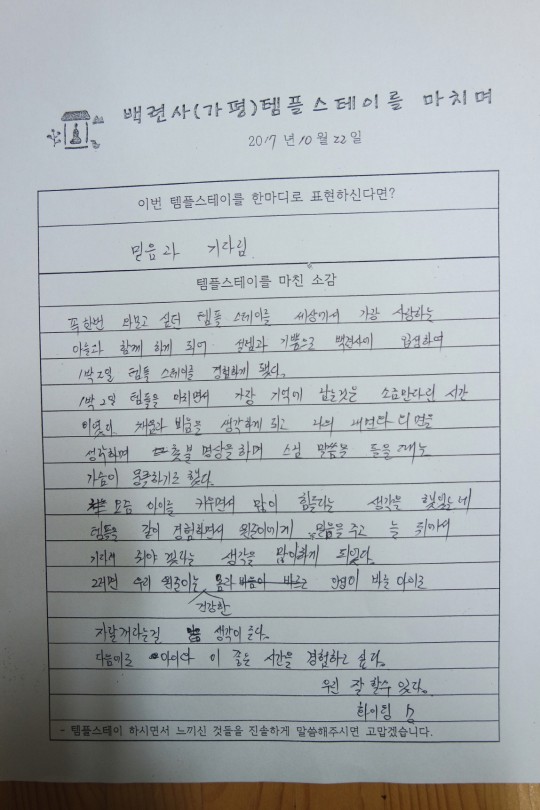 백련사(가평)템플스테이를 마치며
2017년 10월 22일
이번 템플스테이를 한마디로 표현하신다면?
믿음과 기다림
템플스테이를 마친 소감
꼭한번 싶던 템플 스테이를 세상에서 가장 사랑하는
아들과 함께 하게 되어 설렘과 기쁨으로 백련사에 입성하여
1박2일 템플 스테이를 경험하게 됐다.
1박 2일 템플을 마치면서 가장 기억에 남는것은 소금만다라 시간
이였다. 채움과 비움을 생각하게 되고 나의 내면을
생각하며 촛불 명상을 하며 스님 말씀을 들을때는
가슴이 뭉클하기도 했다.
요즘 아이를 키우면서 많이 힘들다는 생각을 했었는데
템플을 같이 경험하면서 에게 믿음을 주고 늘 뒤에서
기다려 줘야 겠다는 생각을 많이하게 되었다.
그러면 우리 몸과 바른 아이로
건강한
자랄거라는걸 생각이 든다.
다음에도 아이와 이 좋은 시간을 경험하고 싶다.
우린 잘 할수 있다.
화이팅
- 템플스테이 하시면서 느끼신 것들을 진솔하게 말씀해주시면 고맙겠습니다.